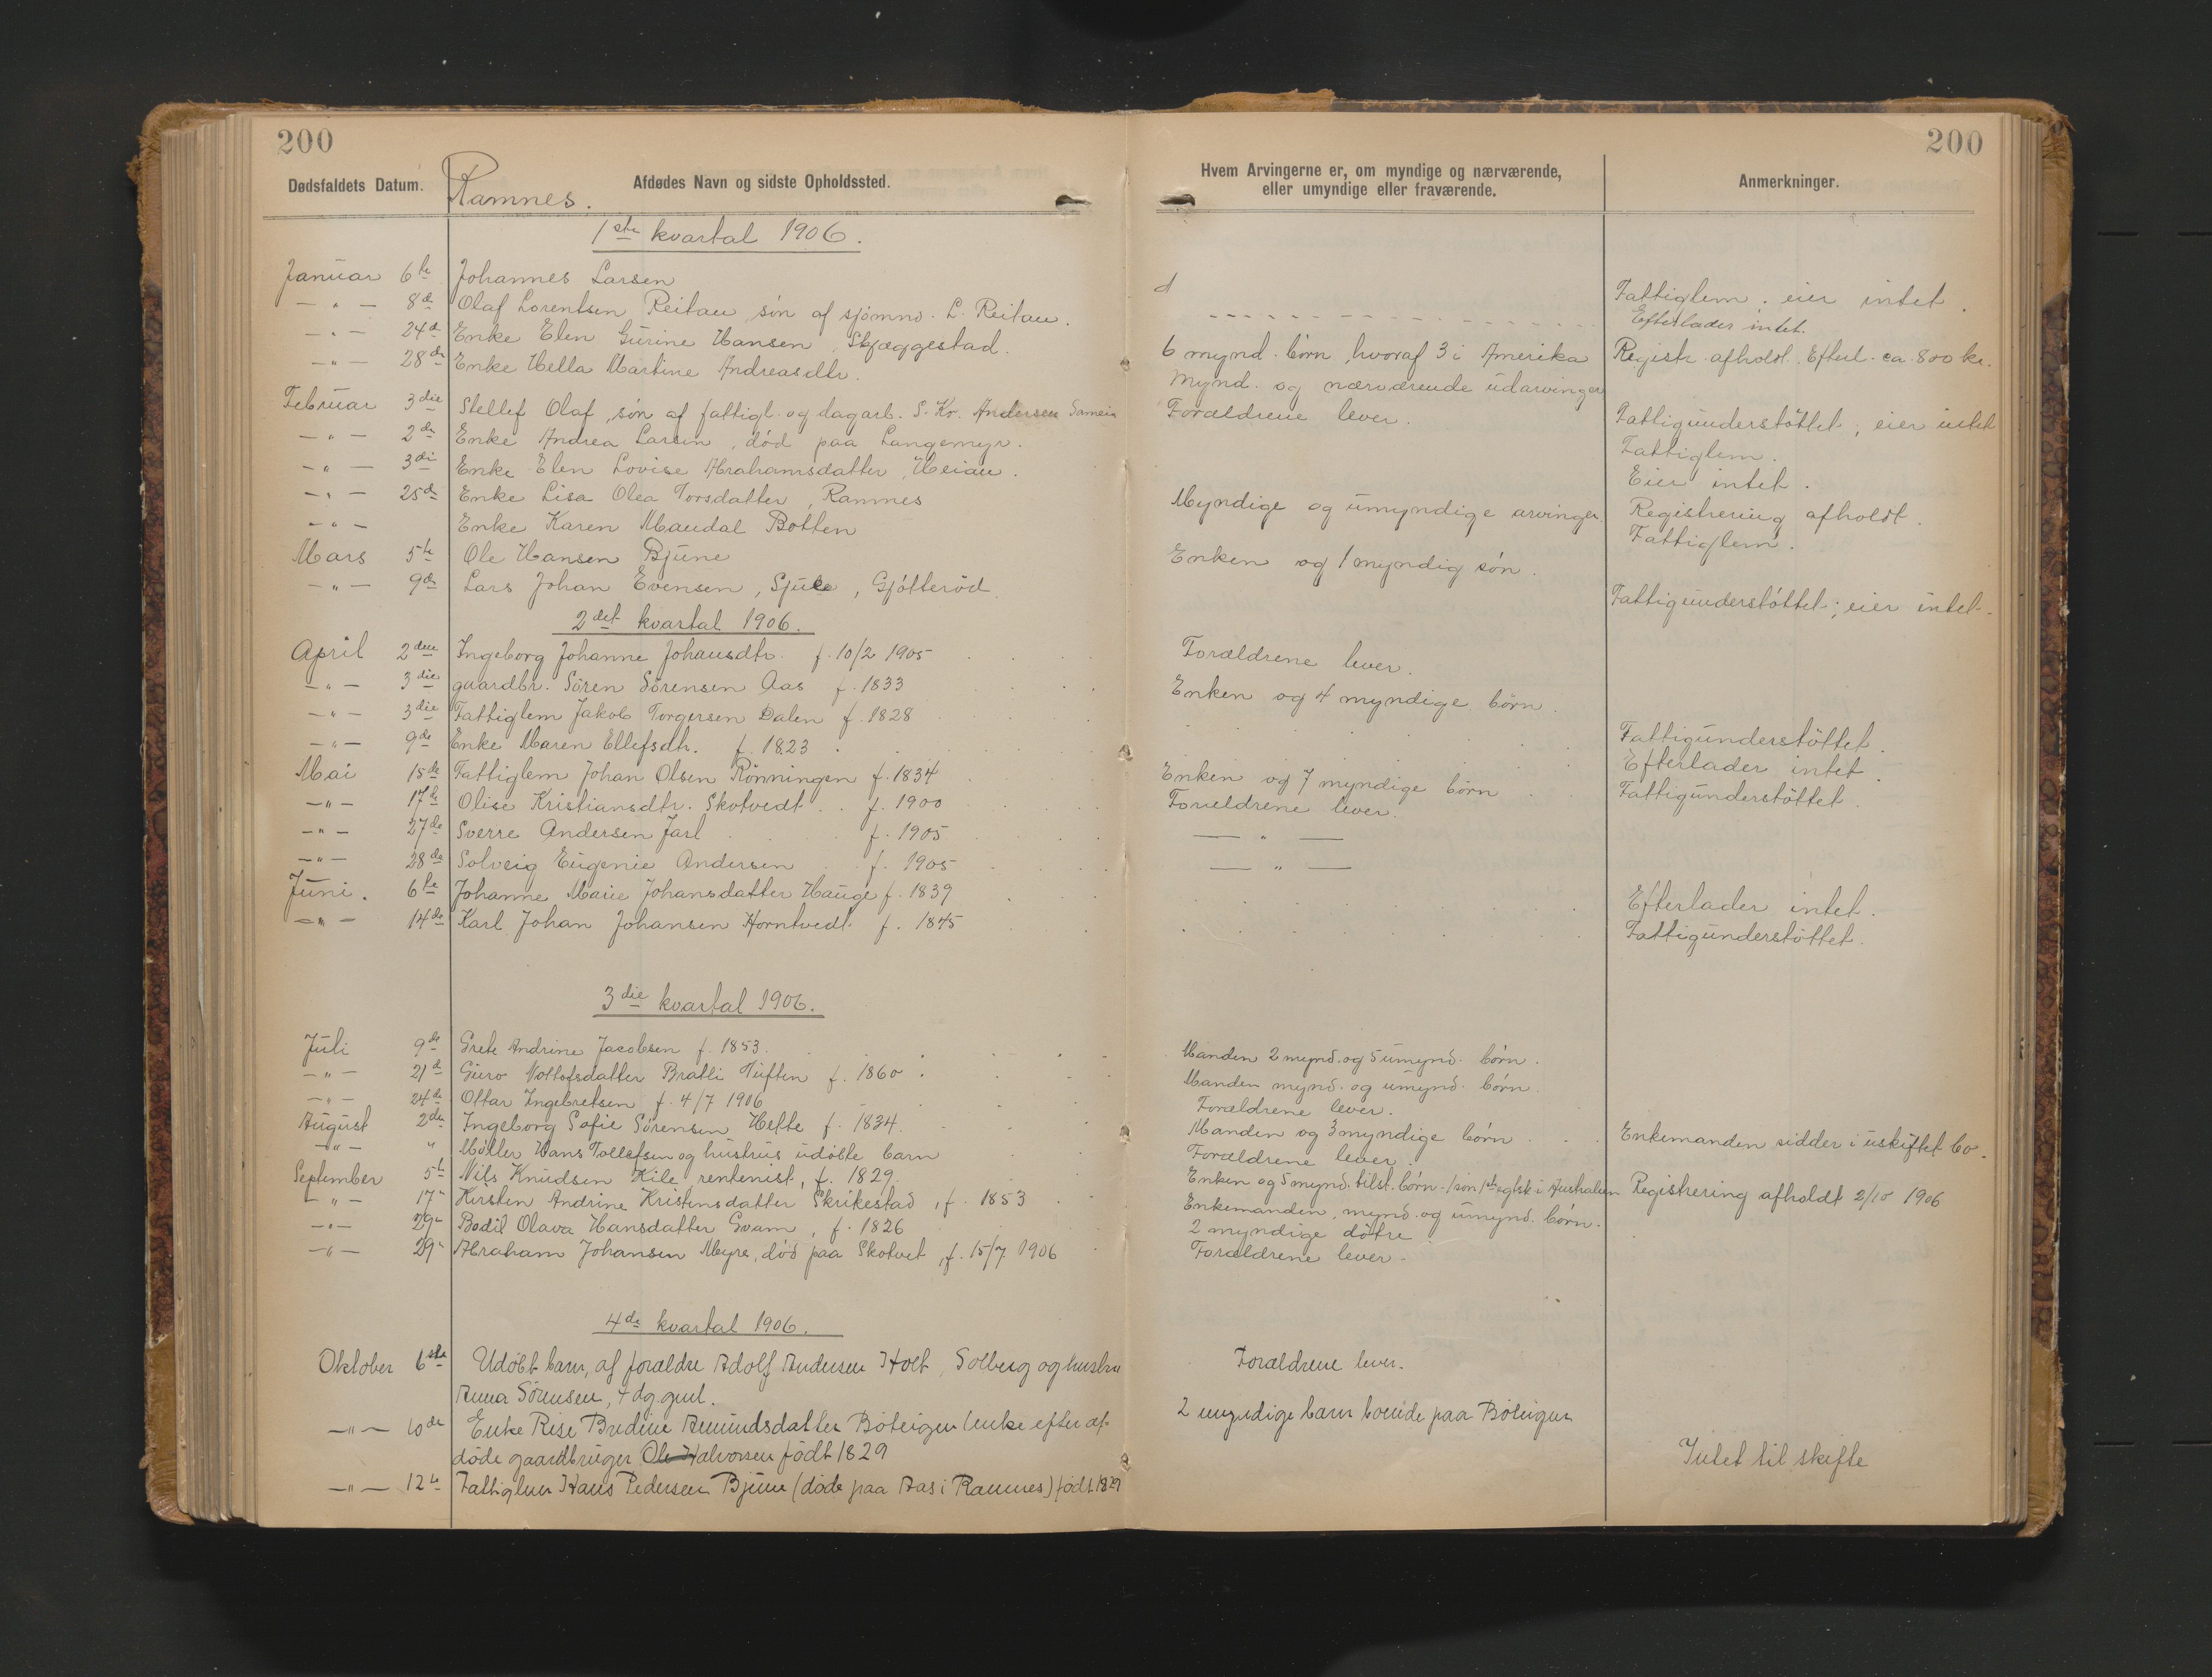 200
200
Dødsfaldets Datum.
Ramnes.
Afdødes Navn og sidste Opholdssted.
Hvem Arvingerne er, om myndige og nærværende,
eller umyndige eller fraværende.
Anmerkninger.
1ste kvartal 1906.
Januar 6te Johannes Larsen Fattiglem. eier intet.
- " - 8de Olaf Lorentsen Reitan søn af sjømnd. L. Reitan. Efterlader intet.
- " - 24de Enke Elen Gurine Hansen, Skjæggestad. 6 mynd. børn, hvoraf 3 i Amerika Registr. afholdt. Efterl. ca. 800 kr.
- " - 28de Enke Hella Martine Andreasdtr. Mynd. og nærværende udarvinger
Februar 3die Stellef Olaf, søn af fattigl. og dagarb. S. Kr. Andersen Forældrene lever. Fattigunderstøttet, eier intet
- " - 2den Enke Andrea Larsen, død paa Langemyr. Fattiglem.
- " - 3die Enke Elen Lovise Abrahamsdatter, Heian. Eier intet.
- " - 25de Enke Lisa Olea Torsdatter, Ramnes Myndige og umyndige arvinger. Registrering afholdt.
- " - Enke Karen Mandal Botten Fattiglem.
Mars 5te Ole Hansen Bjune Enken og 1 myndig søn.
- " - 9de Lars Johan Evensen, , Gjøtterød. Fattigunderstøttet; eier intet.
2det kvartal 1906.
April 2den Ingeborg Johanne Johansdtr. f. 10/2 1905 Forældrene lever.
- " - 3die gaardbr. Søren Sørensen Aas f. 1833 Enken og 4 myndige børn.
- " - 3die Fattiglem Jakob Torgersen Dalen f. 1828 Fattigunderstøttet.
- " - 9de Enke Maren Ellefsdtr. f. 1823 Efterlader intet.
Mai 15de Fattiglem Johan Olsen Rønningen f. 1834 Enken og 7 myndige børn Fattigunderstøttet.
- " - 17de Olise Kristiansdtr. Skotvedt f. 1900 Forældrene lever.
- " - 27de Sverre Andersen Jarl f. 1905 - " -
- " - 28de Solveig Eugenie Andersen f. 1905 - " -
Juni. 6te Johanne Marie Johansdatter Hauge f. 1839 Efterlader intet.
- " - 14de Karl Johan Johansen Horntvedt f. 1845 Fattigunderstøttet.
3die kvartal 1906.
Juli 9de Grete Andrine Jacobsen f. 1853. Manden 2 mynd. og 5 umynd. børn.
- " - 21de Guro Bratli Tuften f. 1860 Manden mynd. og umynd. børn.
- " - 24de Ottar Ingebretsen f. 4/7 1906 Forældrene lever.
August 2den Ingeborg Sofie Sørensen Helte f. 1834. Manden og 3 myndige børn Enkemanden sidder i uskiftet bo.
- " - " Møller Hans Tollefsen og hustrus udøbte barn Forældrene lever.
September 5te Nils Knudsen Kile, rentenist, f. 1829. Enken og 5 mynd. tilst. børn. 1 søn i Australien Registrering afholdt 2/10 1906
- " - 17" Kirsten Andrine Kristensdatter Skrikestad, f. 1853 Enkemanden, mynd. og umynd. børn.
- " - 29" Bodil Olava Hansdatter Gvam, f. 1826 2 myndige døtre
- " - 29" Abraham Johansen Myre, død paa Skotvet, f. 15/7 1906 Forældrene lever.
4de kvartal 1906.
Oktober 6ste Udøbt barn, af forældre Adolf Andersen Holt, Solberg og hustru Forældrene lever.
Anna Sørensen, dg. gml.
- " - 10de Enke Bredine Amundsdatter Bøteigen (enke efter af- 2 umyndige barn boende paa Bøteigen
døde gaardbruger Ole Halvorsen født 1829 Intet til skifte
- " - 12te Fattiglem Hans Pedersen Bjune (døde paa Aas i Ramnes) født 1829